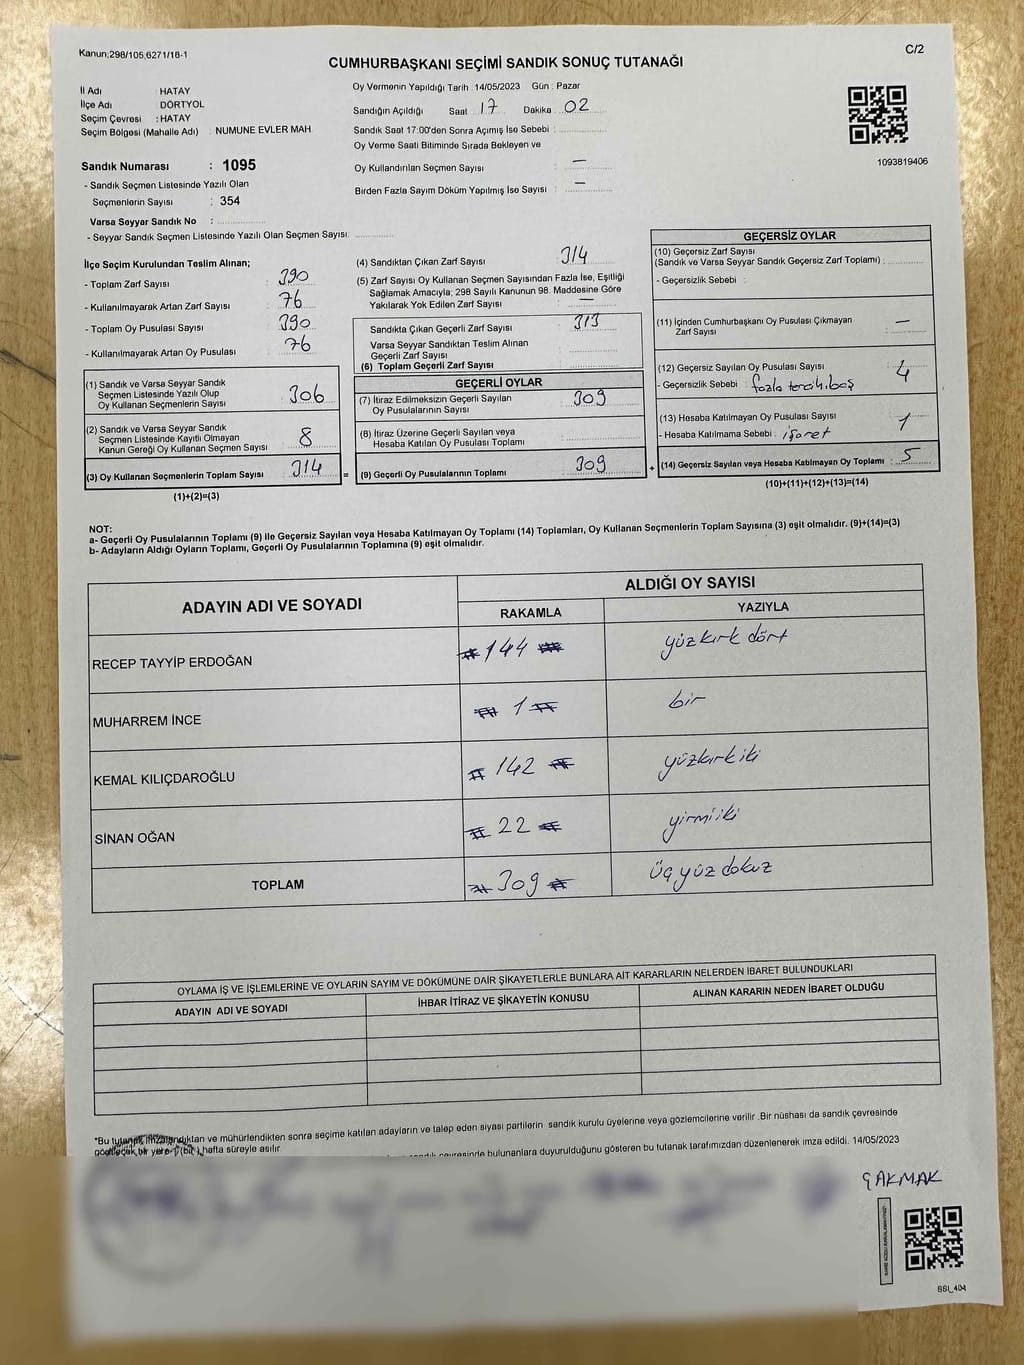 Kanun;298/105,6271/18-1
C/2
CUMHURBAŞKANI SEÇİMİ SANDIK SONUÇ TUTANAĞI
İl Adı : HATAY
İlçe Adı : DÖRTYOL
Seçim Çevresi : HATAY
Seçim Bölgesi (Mahalle Adı) : NUMUNE EVLER MAH
Sandık Numarası : 1095
- Sandık Seçmen Listesinde Yazılı Olan
Seçmenlerin Sayısı : 354
Varsa Seyyar Sandık No :
- Seyyar Sandık Seçmen Listesinde Yazılı Olan Seçmen Sayısı:
Oy Vermenin Yapıldığı Tarih : 14/05/2023 Gün : Pazar
Sandığın Açıldığı Saat 17 Dakika 02
Sandık Saat 17:00'den Sonra Açımış İse Sebebi :
Oy Verme Saati Bitiminde Sırada Bekleyen ve
Oy Kullandırılan Seçmen Sayısı : —
Birden Fazla Sayım Döküm Yapılmış İse Sayısı : —
1093819406
İlçe Seçim Kurulundan Teslim Alınan;
- Toplam Zarf Sayısı : 390
- Kullanılmayarak Artan Zarf Sayısı : 76
- Toplam Oy Pusulası Sayısı : 390
- Kullanılmayarak Artan Oy Pusulası : 76
(1) Sandık ve Varsa Seyyar Sandık
Seçmen Listesinde Yazılı Olup
Oy Kullanan Seçmenlerin Sayısı : 306
(2) Sandık ve Varsa Seyyar Sandık
Seçmen Listesinde Kayıtlı Olmayan
Kanun Gereği Oy Kullanan Seçmen Sayısı : 8
(3) Oy Kullanan Seçmenlerin Toplam Sayısı : 314 =
(1)+(2)=(3)
(4) Sandıktan Çıkan Zarf Sayısı : 314
(5) Zarf Sayısı Oy Kullanan Seçmen Sayısından Fazla İse, Eşitliği
Sağlamak Amacıyla, 298 Sayılı Kanunun 98. Maddesine Göre
Yakılarak Yok Edilen Zarf Sayısı : —
Sandıkta Çıkan Geçerli Zarf Sayısı : 313
Varsa Seyyar Sandıktan Teslim Alınan
Geçerli Zarf Sayısı :
(6) Toplam Geçerli Zarf Sayısı
GEÇERLİ OYLAR
(7) İtiraz Edilmeksizin Geçerli Sayılan
Oy Pusulalarının Sayısı : 309
(8) İtiraz Üzerine Geçerli Sayılan veya
Hesaba Katılan Oy Pusulası Toplamı :
(9) Geçerli Oy Pusulalarının Toplamı : 309 +
GEÇERSİZ OYLAR
(10) Geçersiz Zarf Sayısı
(Sandık ve Varsa Seyyar Sandık Geçersiz Zarf Toplamı) :
- Geçersizlik Sebebi :
(11) İçinden Cumhurbaşkanı Oy Pusulası Çıkmayan
Zarf Sayısı : —
(12) Geçersiz Sayılan Oy Pusulası Sayısı : 4
- Geçersizlik Sebebi : fazla tercih, boş
(13) Hesaba Katılmayan Oy Pusulası Sayısı : 1
- Hesaba Katılmama Sebebi : işaret
(14) Geçersiz Sayılan veya Hesaba Katılmayan Oy Toplamı : 5
(10)+(11)+(12)+(13)=(14)
NOT:
a- Geçerli Oy Pusulalarının Toplamı (9) ile Geçersiz Sayılan veya Hesaba Katılmayan Oy Toplamı (14) Toplamları, Oy Kullanan Seçmenlerin Toplam Sayısına (3) eşit olmalıdır. (9)+(14)=(3)
b- Adayların Aldığı Oyların Toplamı, Geçerli Oy Pusulalarının Toplamına (9) eşit olmalıdır.
ADAYIN ADI VE SOYADI
ALDIĞI OY SAYISI
RAKAMLA YAZIYLA
RECEP TAYYİP ERDOĞAN # 144 # yüzkırk dört
MUHARREM İNCE # 1 # bir
KEMAL KILIÇDAROĞLU # 142 # yüzkırkiki
SİNAN OĞAN # 22 # yirmiiki
TOPLAM # 309 # üç yüz dokuz
OYLAMA İŞ VE İŞLEMLERİNE VE OYLARIN SAYIM VE DÖKÜMÜNE DAİR ŞİKAYETLERLE BUNLARA AİT KARARLARIN NELERDEN İBARET BULUNDUKLARI
ADAYIN ADI VE SOYADI İHBAR İTİRAZ VE ŞİKAYETİN KONUSU ALINAN KARARIN NEDEN İBARET OLDUĞU
"Bu tutanak imzalandıktan ve mühürlendikten sonra seçime katılan adayların ve talep eden siyasi partilerin sandık kurulu üyelerine veya gözlemcilerine verilir .Bir nüshası da sandık çevresinde
görülecek bir yere 1 (bir) hafta süreyle asılır
sandık çevresinde bulunanlara duyurulduğunu gösteren bu tutanak tarafımızdan düzenlenerek imza edildi. 14/05/2023
ÇAKMAK
SSI_404